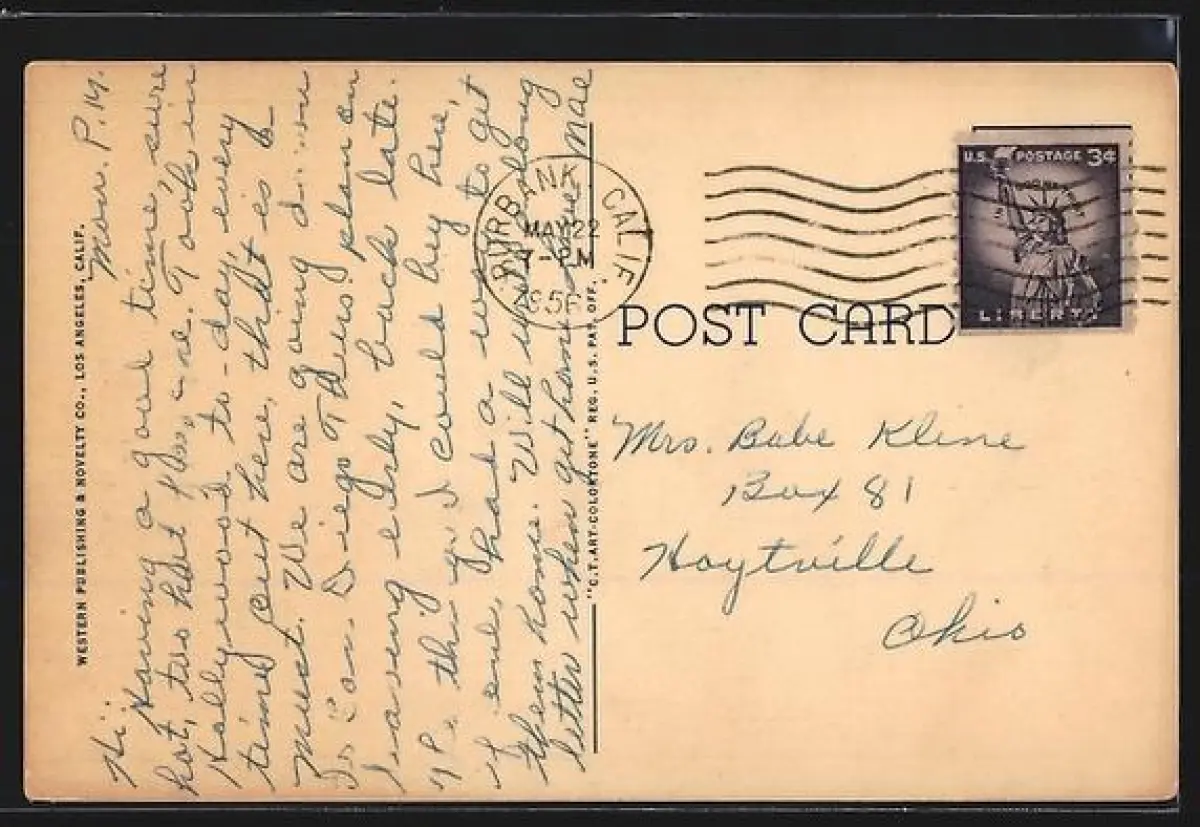 Mon. P.M.
Hi:
Having a good time, sure
hot, too hot for me. Took in
Hollywood to-day, every
time out here, that is a
must. We are going down
to San Diego Thurs. plan on
leaving early, back late.
The things I could buy here,
if one had a way to get
them home. Will write long
letter when get home
Mae
WESTERN PUBLISHING & NOVELTY CO., LOS ANGELES, CALIF.
"C.T. ART-COLORTONE" REG. U.S. PAT. OFF.
BURBANK CALIF.
MAY 22
PM
195
U.S. POSTAGE 3¢
LIBERTY
POST CARD
Mrs. Babe Kline
Box 81
Hoytville
Ohio